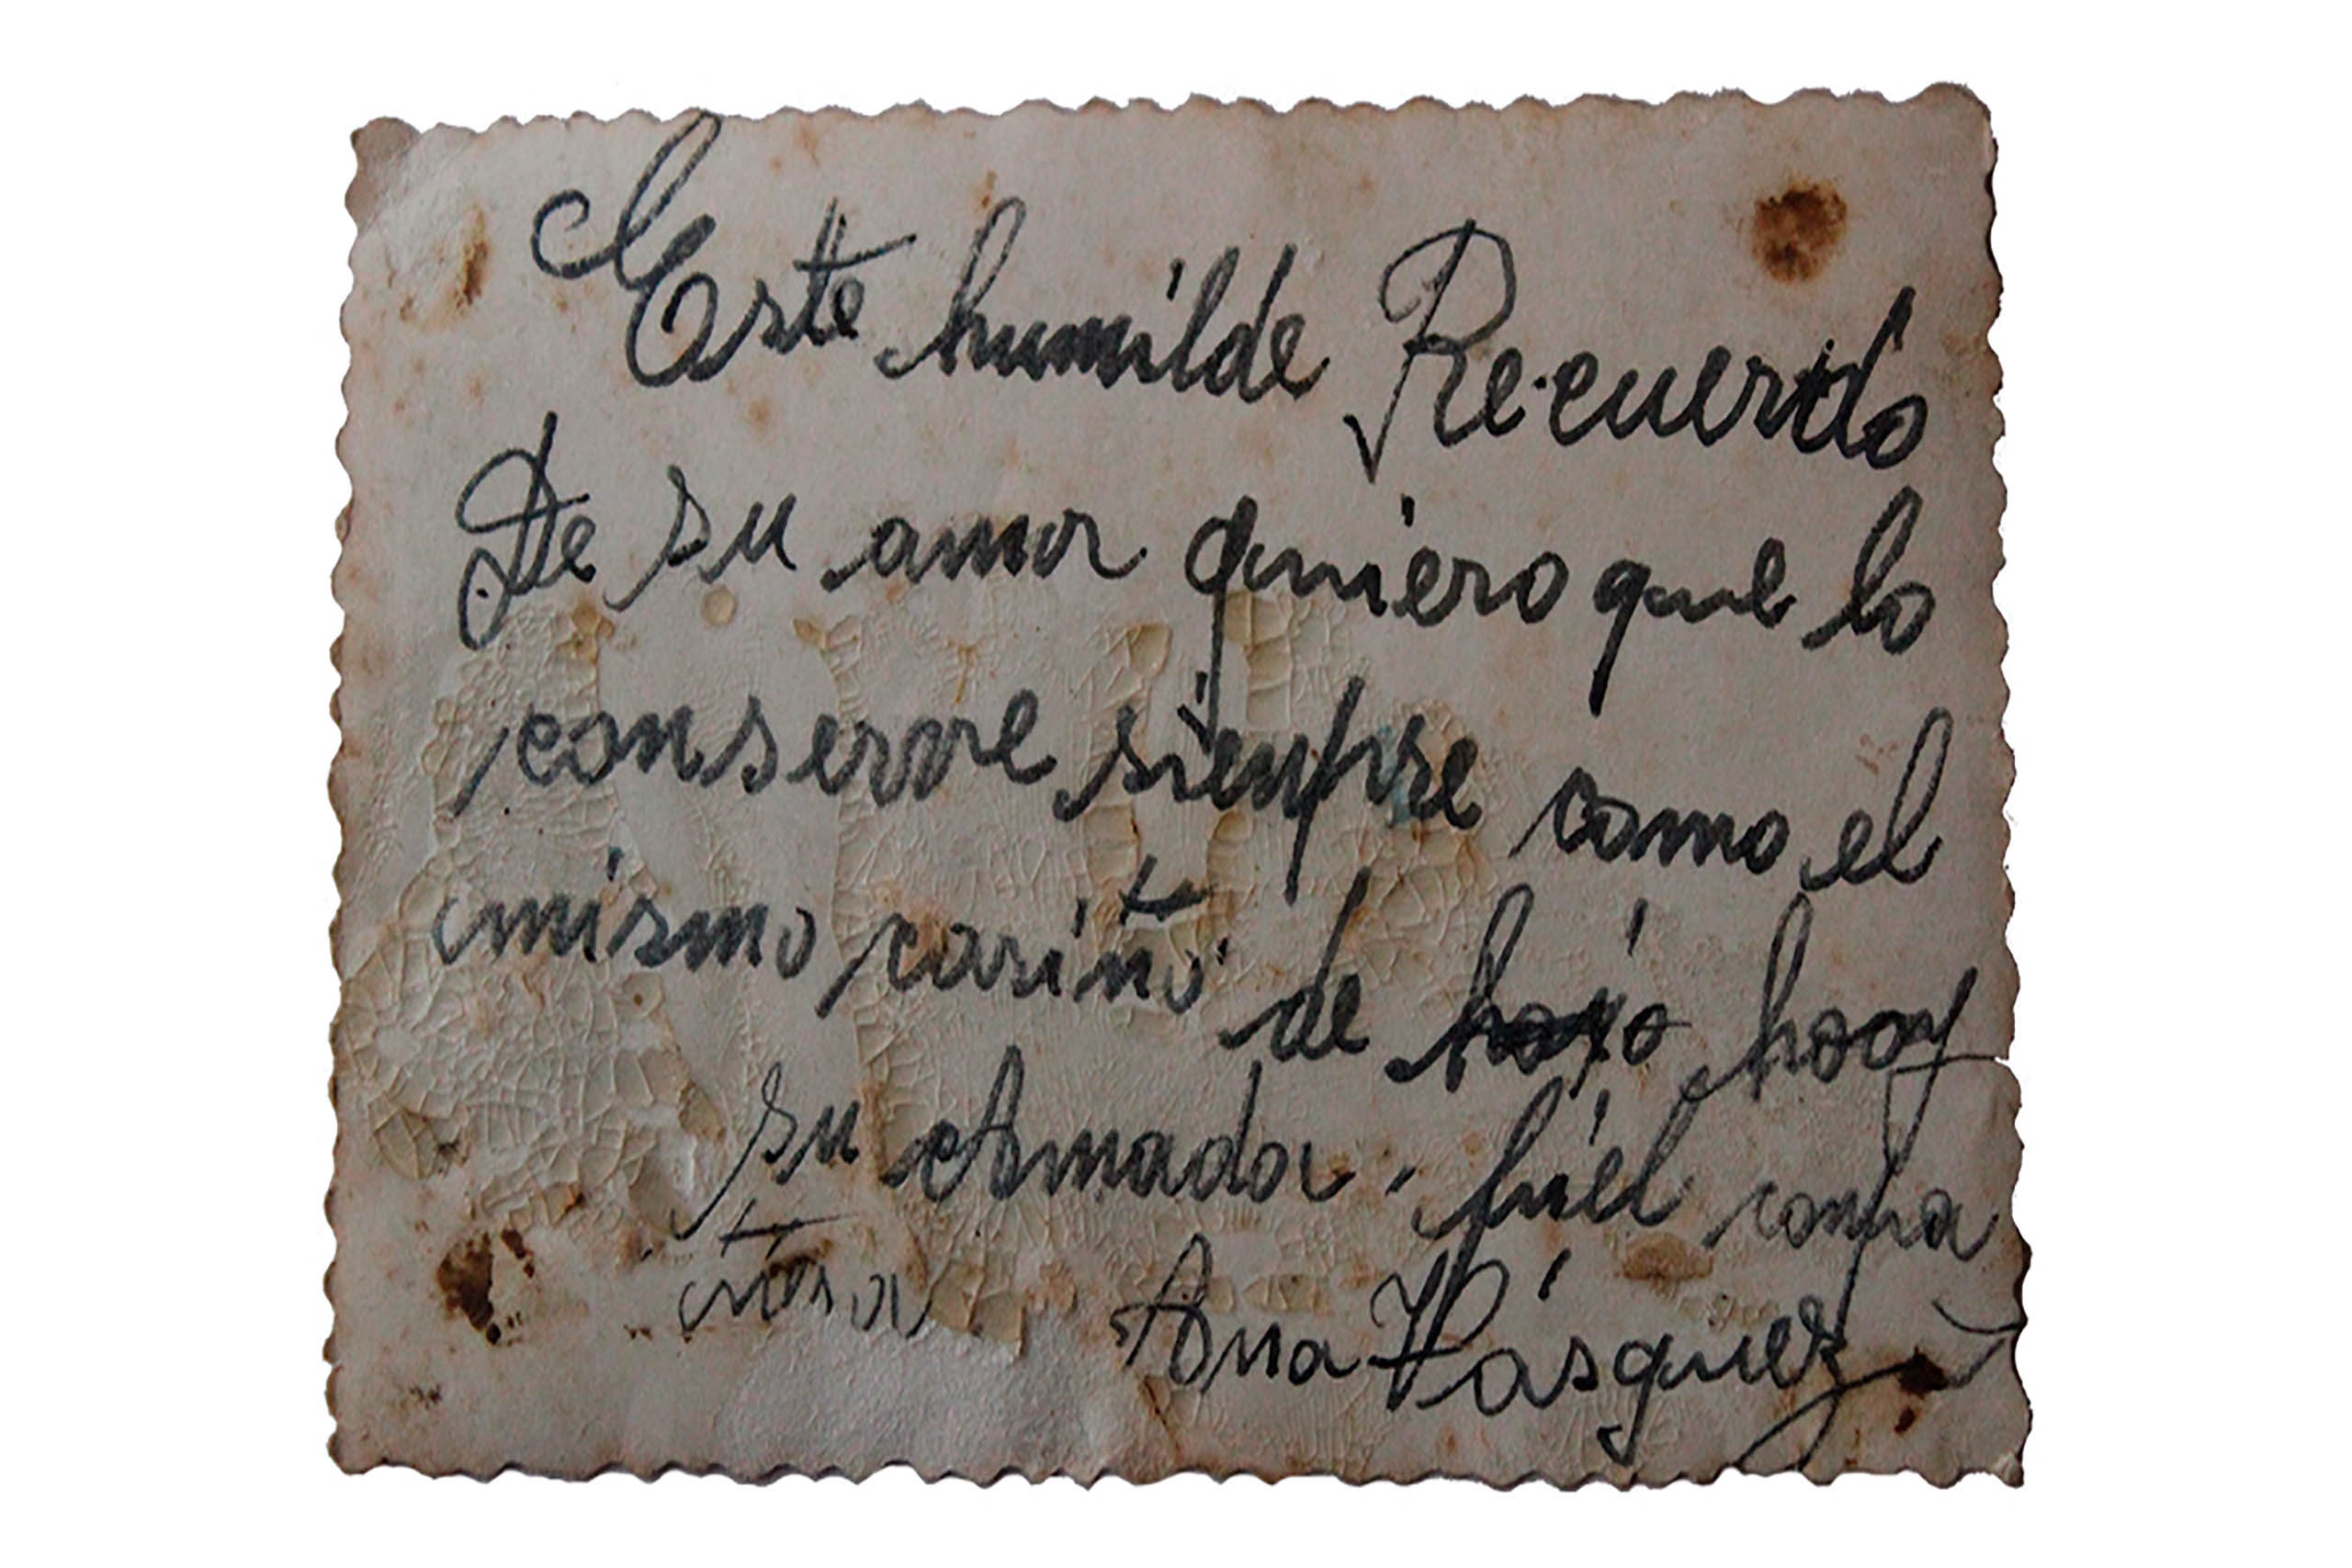 Este humilde Recuerdo
De su amor quiero que lo
conserve siempre como el
mismo cariño de hoy
su Amador. fiel
Ana Vásquez